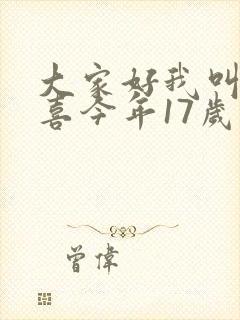 大家好我叫
喜今年17歲
曾偉